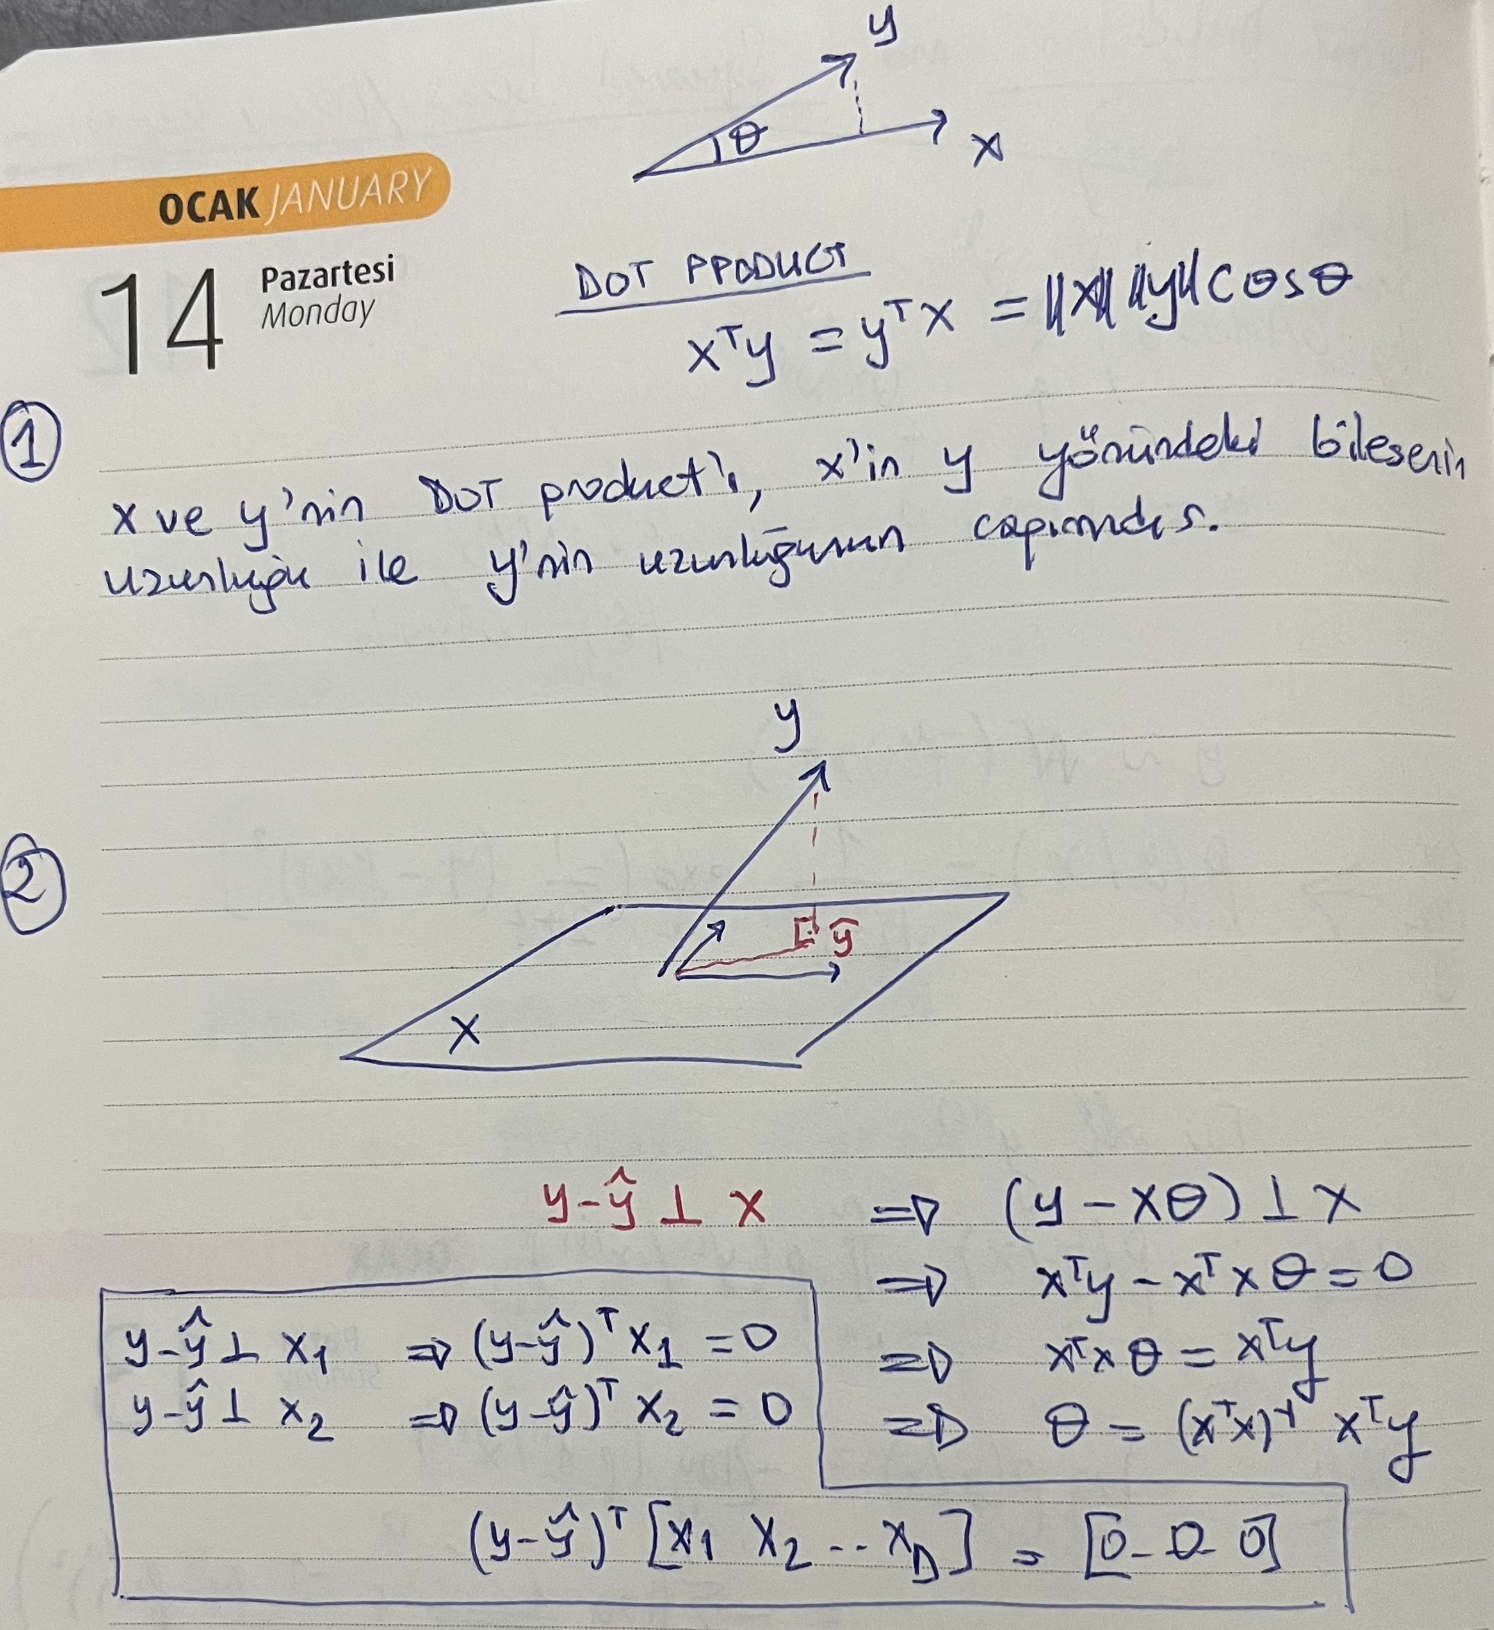 y
θ
x
OCAK JANUARY
14 Pazartesi
Monday
DOT PRODUCT
xᵀy = yᵀx = ||x|| ||y|| cosθ
1
x ve y'nin DOT product'ı, x'in y yönündeki bileşenin
uzunluğu ile y'nin uzunluğunun çarpımıdır.
y
2
ŷ
X
y-ŷ ⊥ X ⇒ (y - Xθ) ⊥ X
⇒ Xᵀy - XᵀXθ = 0
y-ŷ ⊥ x₁ ⇒ (y-ŷ)ᵀ x₁ = 0
⇒ XᵀXθ = Xᵀy
y-ŷ ⊥ x₂ ⇒ (y-ŷ)ᵀ x₂ = 0
⇒ θ = (XᵀX)⁻¹ Xᵀy
(y-ŷ)ᵀ [x₁ x₂ -- x_D] = [0 - 0 - 0]